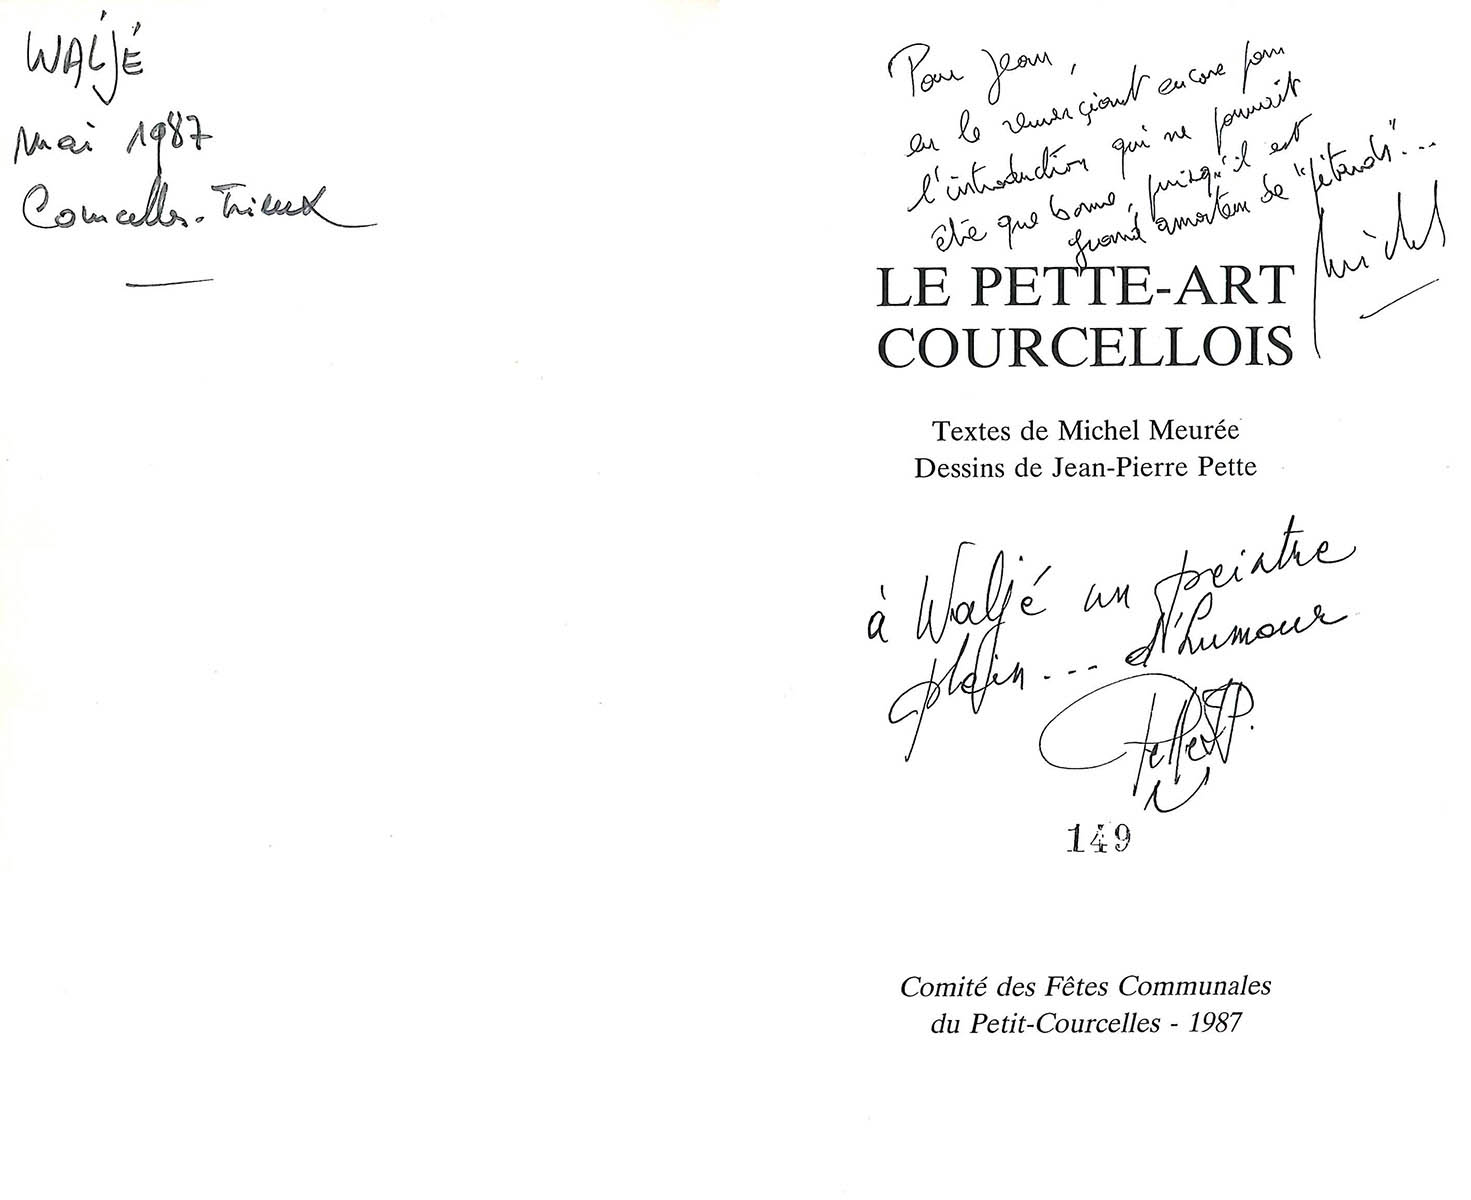 WALJÉ
Mai 1987
Courcelles-Trieux
Pour Jean,
en le remerciant encore pour
l'introduction qui ne pouvait
être que bonne, puisqu'il est
grand amateur de "pétards"...
Michel
LE PETTE-ART
COURCELLOIS
Textes de Michel Meurée
Dessins de Jean-Pierre Pette
à Waljé un peintre
plein... d'humour
Pette JP.
149
Comité des Fêtes Communales
du Petit-Courcelles - 1987